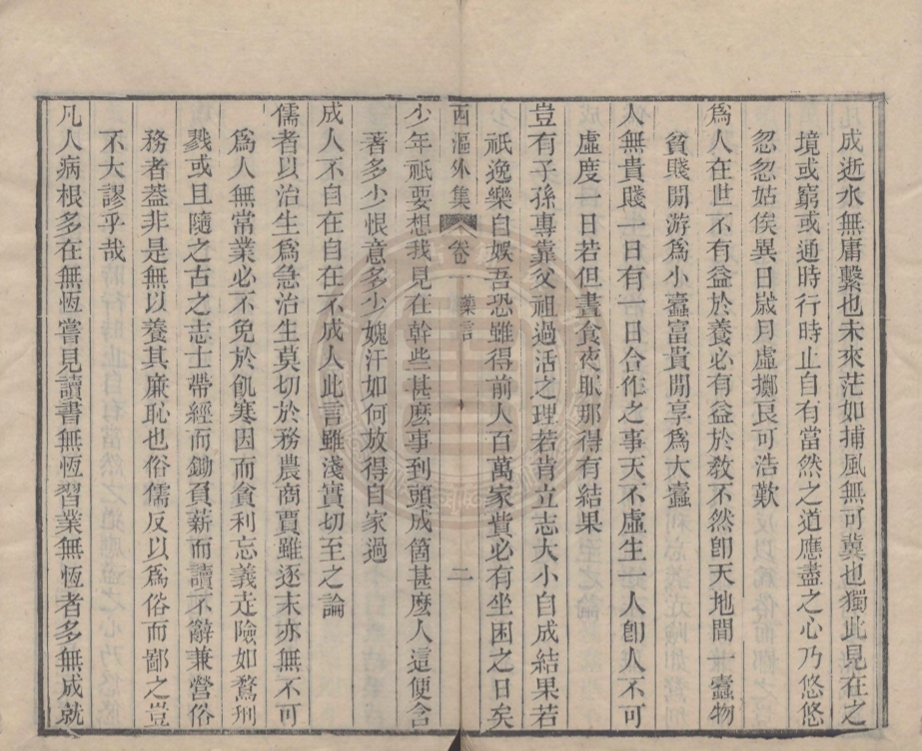 成逝水無庸繫也未來茫如捕風無可冀也獨此見在之
境或窮或通時行時止自有當然之道應盡之心乃悠悠
忽忽姑俟異日歲月虛擲良可浩歎
爲人在世不有益於養必有益於敎不然卽天地間一蠹物
貧賤閒游爲小蠹富貴閒享爲大蠹
人無貴賤一日有一日合作之事天不虛生一人卽人不可
虛度一日若但晝食夜眠那得有結果
豈有子孫專靠父祖過活之理若肯立志大小自成結果若
祇逸樂自娛吾恐雖得前人百萬家貲必有坐困之日矣
西漚外集 卷一 藥言 二
少年祇要想我見在幹些甚麽事到頭成箇甚麽人這便含
著多少恨意多少媿汗如何放得自家過
成人不自在自在不成人此言雖淺實切至之論
儒者以治生爲急治生莫切於務農商賈雖逐末亦無不可
爲人無常業必不免於飢寒因而貪利忘義走險如鶩刑
戮或且隨之古之志士帶經而鋤負薪而讀不辭兼營俗
務者葢非是無以養其廉恥也俗儒反以爲俗而鄙之豈
不大謬乎哉
凡人病根多在無恆嘗見讀書無恆習業無恆者多無成就